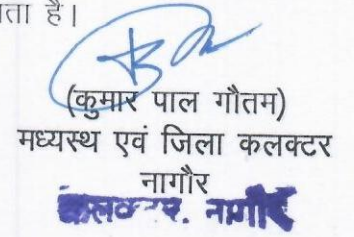 है।
(कुमार पाल गौतम)
मध्यस्थ एवं जिला कलक्टर
नागौर
कलक्टर, नागौर